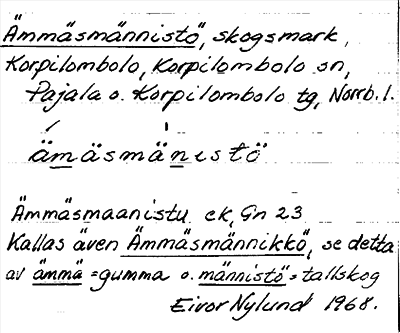 Ämmäsmännistö, skogsmark,
Korpilombolo, Korpilombolo sn,
Pajala o. Korpilombolo tg, Norrb. l.
ämäsmänistö
Ämmäsmaanistu ek, Gn 23
Kallas även Ämmäsmännikkö, se detta
av ämmä = gumma o. männistö = tallskog
Eivor Nylund 1968.